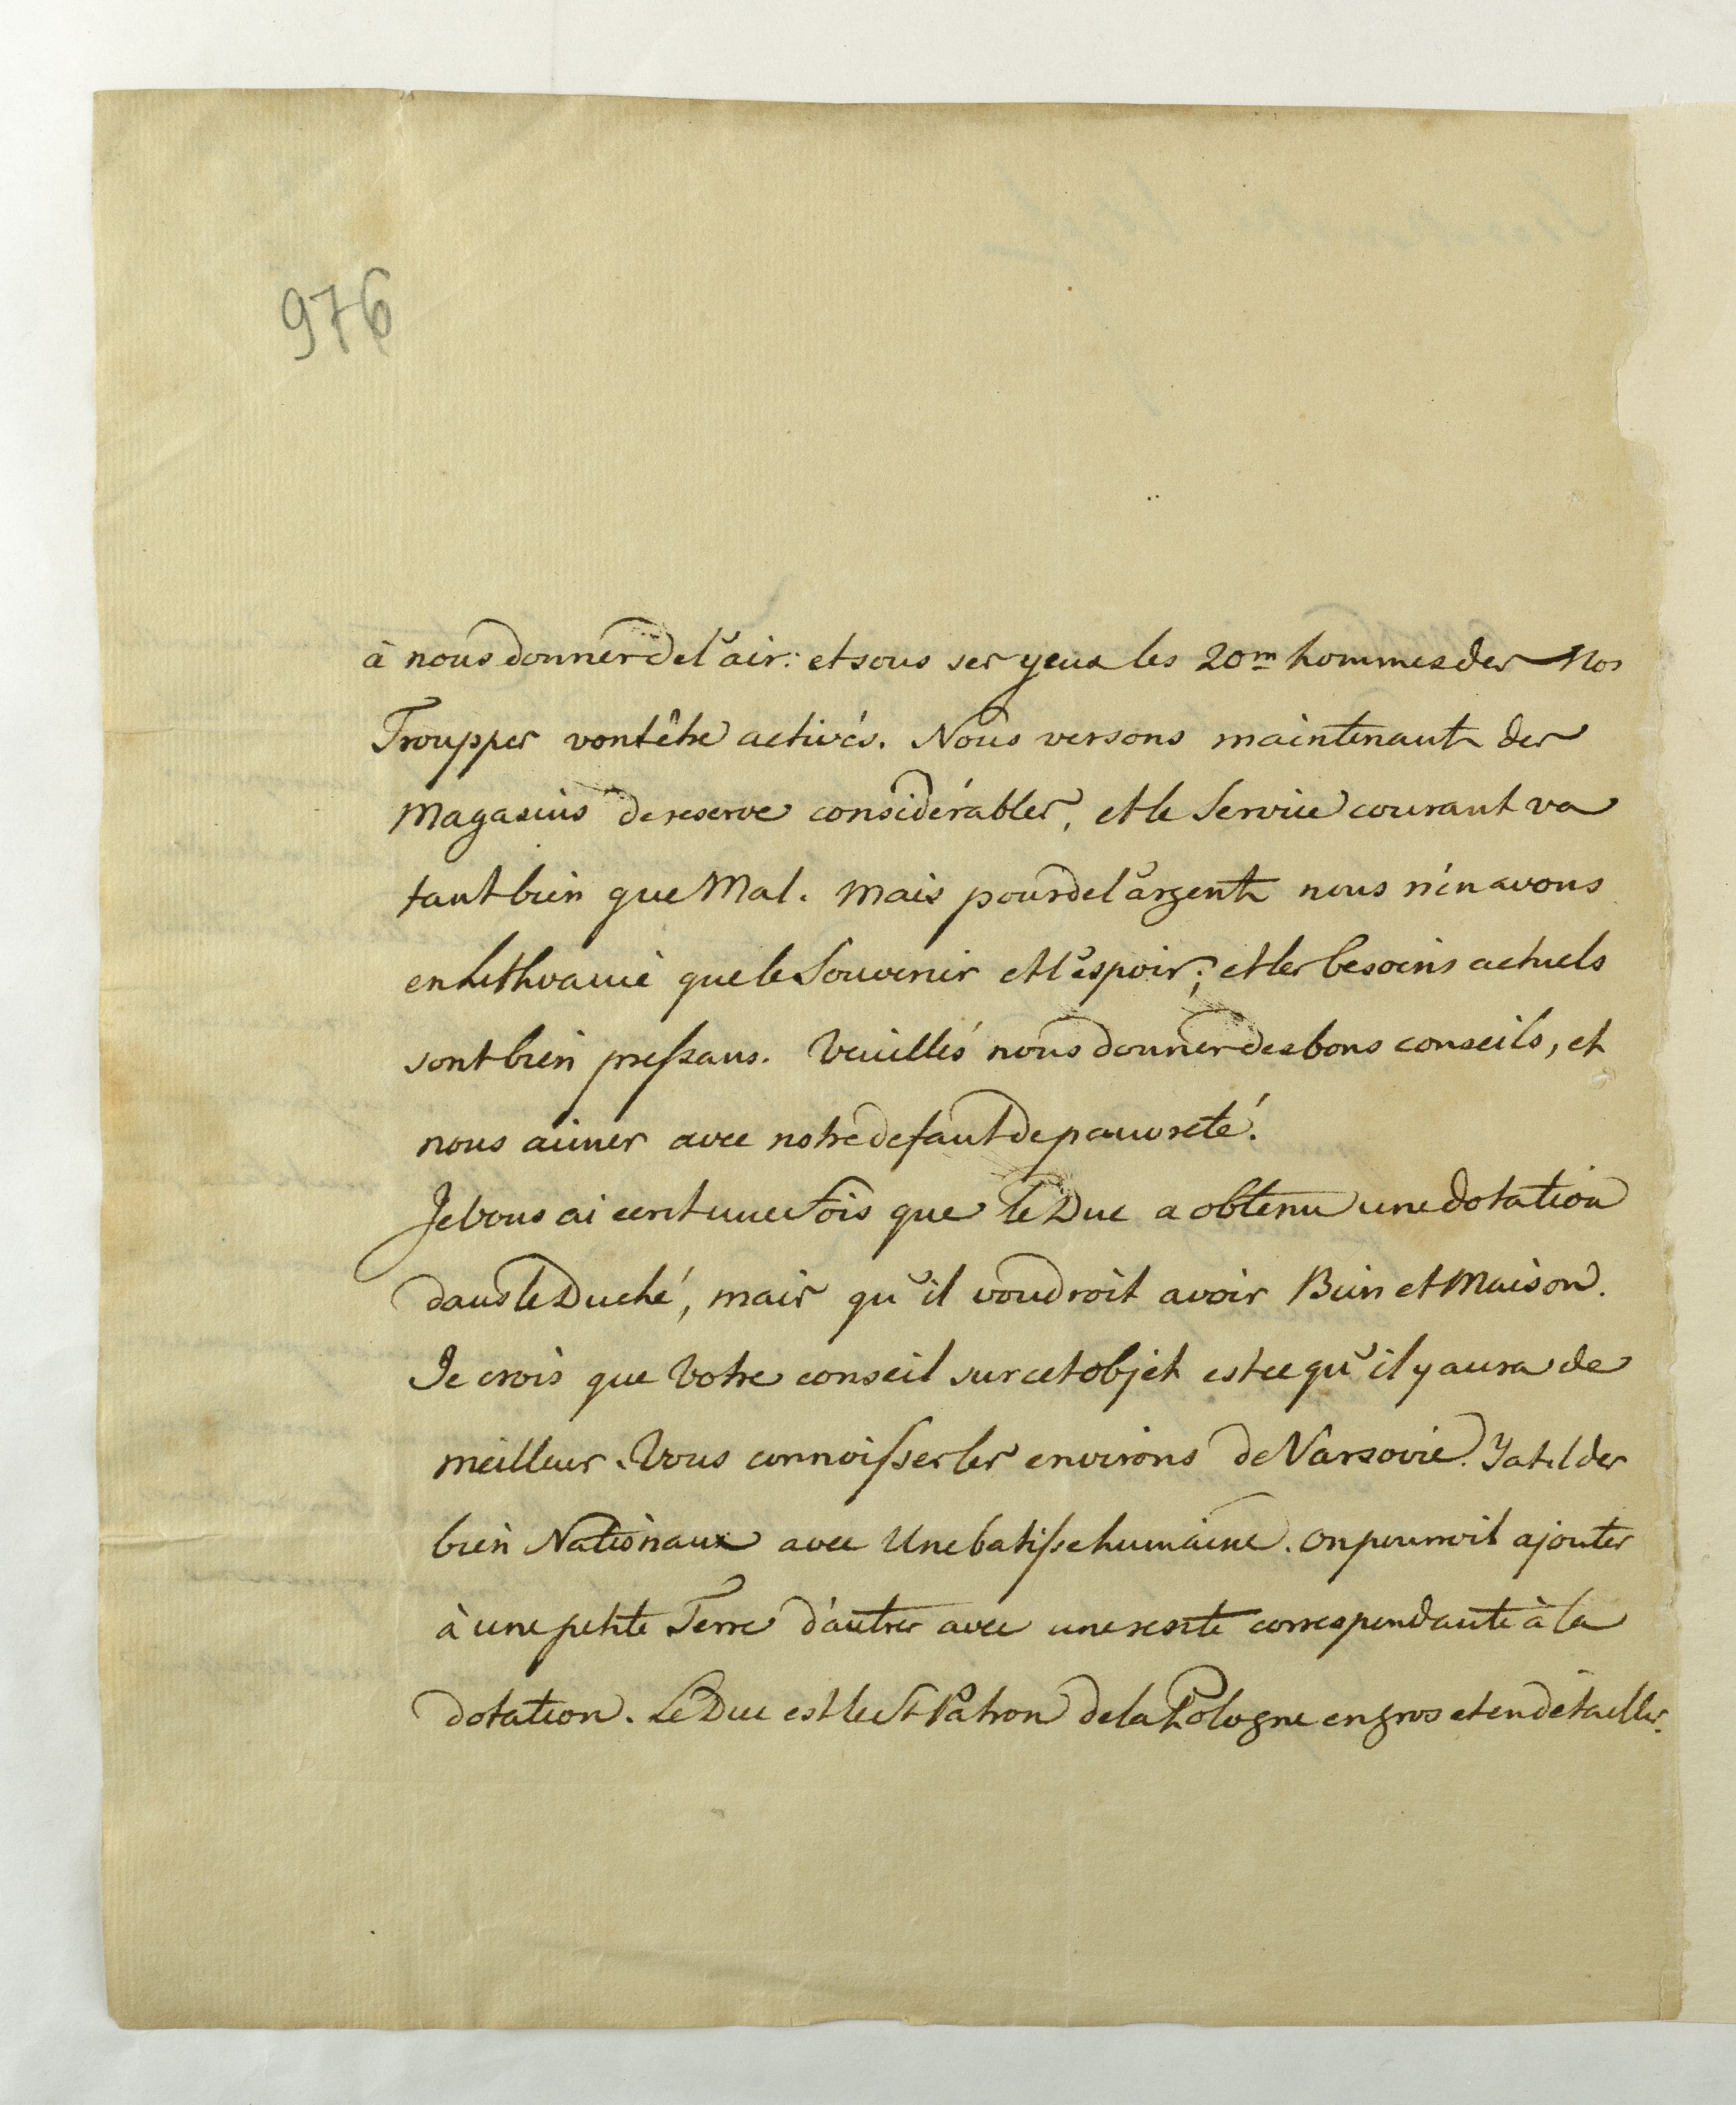 976
à nous donner de l'air: et sous ses yeux les 20m hommes des Nos
Trouppes vont être activés. Nous versons maintenant des
Magasins de reserve considérables, et le Service courant va
tant bien que Mal. Mais pour de l'argent nous n'en avons
en Lithvanie que le Souvenir et l'espoir; et les besoins actuels
sont bien pressans. Veuillés nous donner des bons conseils, et
nous aimer avec notre defaut de pauvreté.
Je vous ai ecrit une fois que le Duc a obtenu une dotation
dans le Duché, mais qu'il voudroit avoir Bien et Maison.
Je crois que Votre conseil sur cet objet est ce qu'il y aura de
meilleur. Vous connoisses les environs de Varsovie. Y at il des
bien Nationaux avec Une batisse humaine. on pourroit ajouter
à une petite Terre d'autres avec une rente correspondante à la
dotation. Le Duc est le St Patron de la Pologne en gros et en détailles.